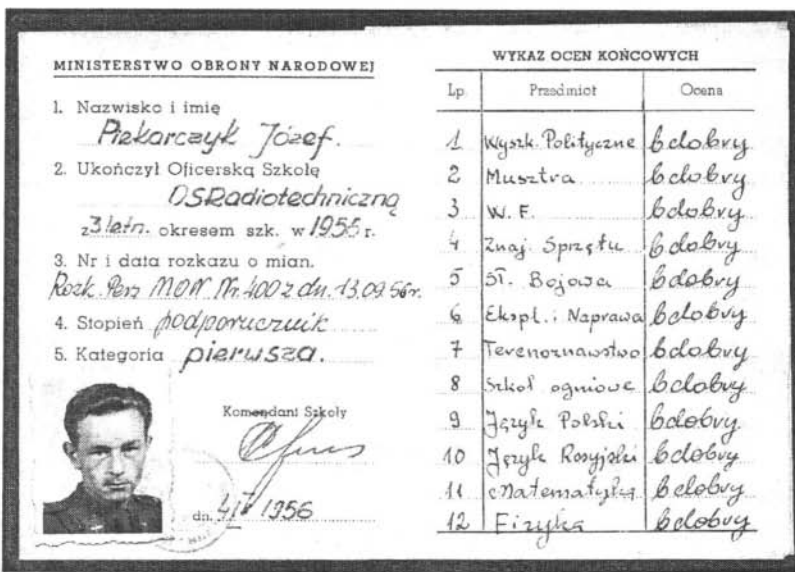 MINISTERSTWO OBRONY NARODOWEJ
1. Nazwisko i imię
Piekarczyk Józef.
2. Ukończył Oficerską Szkołę
OSRadiotechniczną
z 3 letn. okresem szk. w 1956 r.
3. Nr i data rozkazu o mian.
Rozk. Pers MON Nr. 400 z dn. 13.09.56r.
4. Stopień podporucznik
5. Kategoria pierwsza.
Komendant Szkoły
dn. 1956
WYKAZ OCEN KOŃCOWYCH
Lp. Przedmiot Ocena
1 Wyszk. Polityczne bdobry
2 Musztra bdobry
3 W. F. bdobry
4 Znaj. Sprzętu bdobry
5 St. Bojowa bdobry
6 Ekspl. i Naprawa bdobry
7 Terenoznawstwo bdobry
8 Szkol ogniowe bdobry
9 Język Polski bdobry
10 Język Rosyjski bdobry
11 Matematyka bdobry
12 Fizyka bdobry